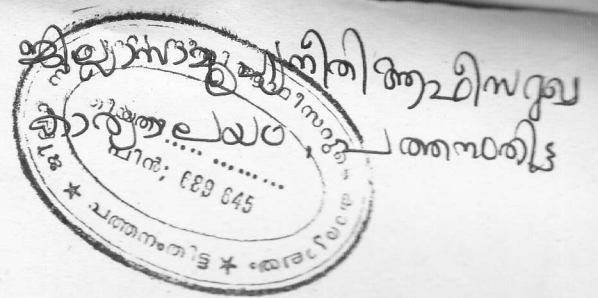 ജില്ലാസാമൂഹ്യനീതി ആഫീസറുടെ
കാര്യാലയം, പത്തനംതിട്ട
പിൻ; 689 645
★ പത്തനംതിട്ട ★